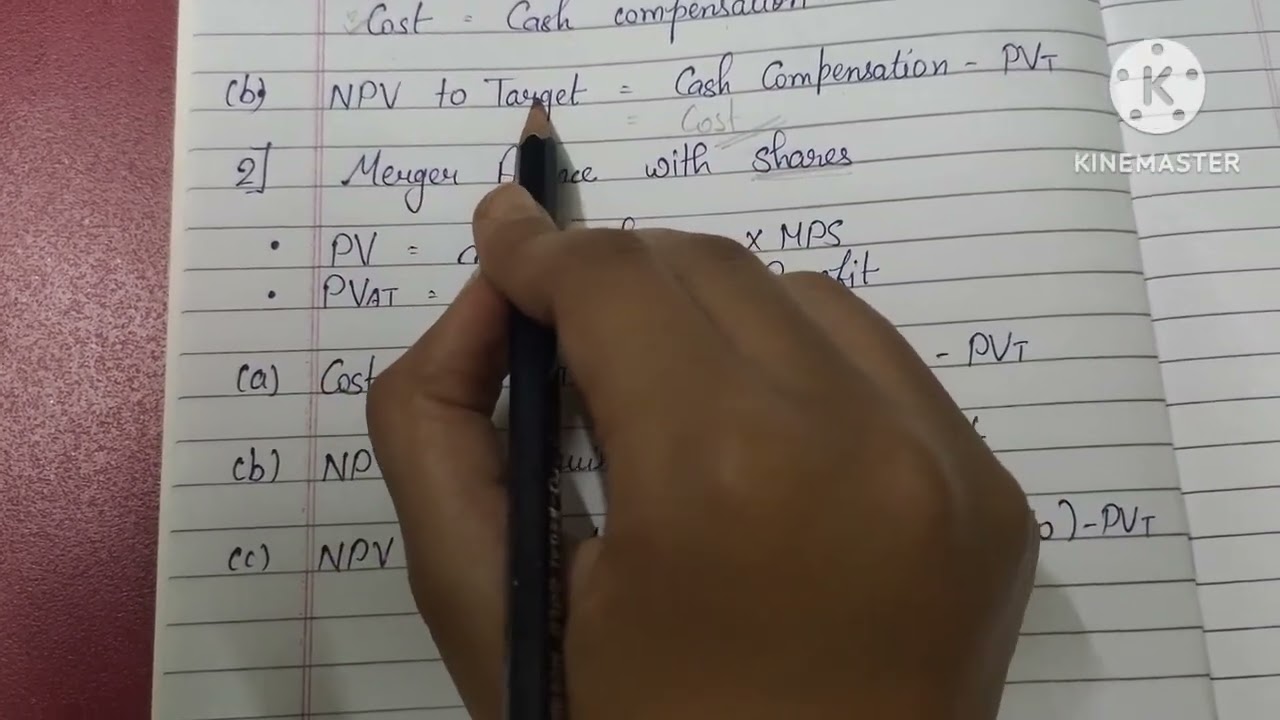 Cost = Cash compensation
(b) NPV to Target = Cash Compensation - PVT
= Cost
2] Merger with shares
• PV = x MPS
• PVAT =
(a) Cost - PVT
(b) NP
(c) NPV ) - PVT
K
KINEMASTER